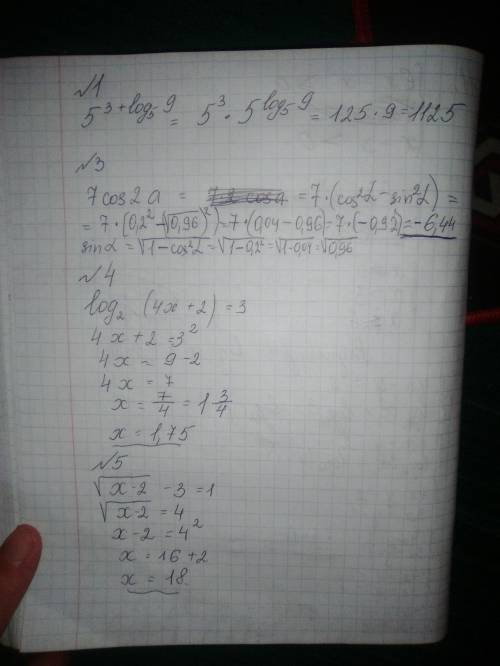 №1
5^{3+log_5 9} = 5^3 · 5^{log_5 9} = 125 · 9 = 1125
№3
7cos2a = = 7 · (cos²α - sin²α) =
= 7 · (0,2² - (√0,96)²) = 7 · (0,04 - 0,96) = 7 · (-0,92) = -6,44
sinα = √1-cos²α = √1-0,2² = √1-0,04 = √0,96
№4
log_2 (4x+2) = 3
4x+2 = 3²
4x = 9-2
4x = 7
x = 7/4 = 1 3/4
x = 1,75
№5
√x-2 - 3 = 1
√x-2 = 4
x-2 = 4²
x = 16+2
x = 18